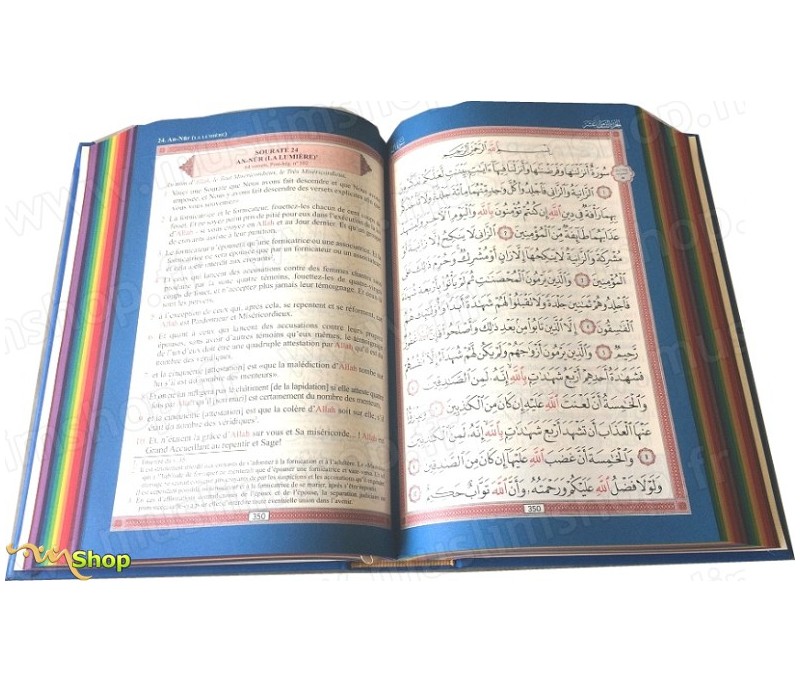 24. An-Nûr (LA LUMIÈRE)
SOURATE 24
AN-NÛR (LA LUMIÈRE)
Au nom d'Allah, le Tout Miséricordieux, le Très Miséricordieux.
1 Voici une Sourate que Nous avons fait descendre et que Nous avons
imposée, et Nous y avons fait descendre des versets explicites afin que
vous vous souveniez».
2 La fornicatrice et le fornicateur, fouettez-les chacun de cent coups de
fouet. Et ne soyez point pris de pitié pour eux dans l'exécution de la loi
d'Allah - si vous croyez en Allah et au Jour dernier. Et qu'un groupe
de croyants assiste à leur punition.
3 Le fornicateur n'épousera qu'une fornicatrice ou une associatrice. Et la
fornicatrice ne sera épousée que par un fornicateur ou un associateur;
et cela a été interdit aux croyants.
4 Et ceux qui lancent des accusations contre des femmes chastes sans
produire par la suite quatre témoins, fouettez-les de quatre-vingts
coups de fouet, et n'acceptez plus jamais leur témoignage. Et ceux-là
sont les pervers,
5 à l'exception de ceux qui, après cela, se repentent et se réforment, car
Allah est Pardonneur et Miséricordieux.
6 Et quant à ceux qui lancent des accusations contre leurs propres
épouses, sans avoir d'autres témoins qu'eux mêmes, le témoignage
de l'un d'eux doit être une quadruple attestation par Allah qu'il est du
nombre des véridiques,
7 et la cinquième [attestation] est «que la malédiction d'Allah tombe sur
lui s'il est du nombre des menteurs».
8 Et on ne lui infligera pas le châtiment [de la lapidation] si elle atteste quatre
fois par Allah qu'il [son mari] est certainement du nombre des menteurs,
9 et la cinquième [attestation] est que la colère d'Allah soit sur elle, s'il
était du nombre des véridiques.
10 Et, n'étaient la grâce d'Allah sur vous et Sa miséricorde...! Allah est
Grand Accueillant au repentir et Sage!
350
بِسْمِ اللَّهِ الرَّحْمَٰنِ الرَّحِيمِ
سُورَةٌ أَنزَلْنَاهَا وَفَرَضْنَاهَا وَأَنزَلْنَا فِيهَا ءَايَٰتٍ بَيِّنَٰتٍ لَّعَلَّكُمْ تَذَكَّرُونَ
١ الزَّانِيَةُ وَالزَّانِي فَاجْلِدُوا كُلَّ وَٰحِدٍ مِّنْهُمَا مِا۟ئَةَ جَلْدَةٍ وَلَا تَأْخُذْكُم
بِهِمَا رَأْفَةٌ فِي دِينِ اللَّهِ إِن كُنتُمْ تُؤْمِنُونَ بِاللَّهِ وَالْيَوْمِ الْآخِرِ وَلْيَشْهَدْ
عَذَابَهُمَا طَآئِفَةٌ مِّنَ الْمُؤْمِنِينَ ٢ الزَّانِي لَا يَنكِحُ إِلَّا زَانِيَةً أَوْ
مُشْرِكَةً وَالزَّانِيَةُ لَا يَنكِحُهَآ إِلَّا زَانٍ أَوْ مُشْرِكٌ وَحُرِّمَ ذَٰلِكَ عَلَى
الْمُؤْمِنِينَ ٣ وَالَّذِينَ يَرْمُونَ الْمُحْصَنَٰتِ ثُمَّ لَمْ يَأْتُوا بِأَرْبَعَةِ شُهَدَآءَ
فَاجْلِدُوهُمْ ثَمَٰنِينَ جَلْدَةً وَلَا تَقْبَلُوا لَهُمْ شَهَٰدَةً أَبَدًا وَأُولَٰٓئِكَ هُمُ
الْفَٰسِقُونَ ٤ إِلَّا الَّذِينَ تَابُوا مِن بَعْدِ ذَٰلِكَ وَأَصْلَحُوا فَإِنَّ اللَّهَ غَفُورٌ
رَّحِيمٌ ٥ وَالَّذِينَ يَرْمُونَ أَزْوَٰجَهُمْ وَلَمْ يَكُن لَّهُمْ شُهَدَآءُ إِلَّآ أَنفُسُهُمْ
فَشَهَٰدَةُ أَحَدِهِمْ أَرْبَعُ شَهَٰدَٰتٍ بِاللَّهِ إِنَّهُ لَمِنَ الصَّٰدِقِينَ ٦
وَالْخَٰمِسَةُ أَنَّ لَعْنَتَ اللَّهِ عَلَيْهِ إِن كَانَ مِنَ الْكَٰذِبِينَ ٧ وَيَدْرَؤُا
عَنْهَا الْعَذَابَ أَن تَشْهَدَ أَرْبَعَ شَهَٰدَٰتٍ بِاللَّهِ إِنَّهُ لَمِنَ الْكَٰذِبِينَ ٨
وَالْخَٰمِسَةَ أَنَّ غَضَبَ اللَّهِ عَلَيْهَآ إِن كَانَ مِنَ الصَّٰدِقِينَ ٩
وَلَوْلَا فَضْلُ اللَّهِ عَلَيْكُمْ وَرَحْمَتُهُ وَأَنَّ اللَّهَ تَوَّابٌ حَكِيمٌ
350
Shop